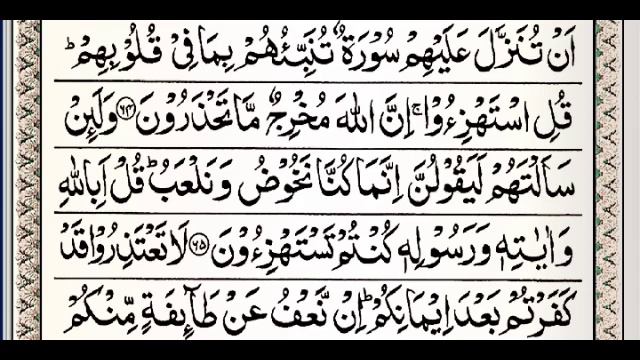 اَنْ تُنَزَّلَ عَلَيْهِمْ سُوْرَةٌ تُنَبِّئُهُمْ بِمَا فِيْ قُلُوْبِهِمْ ؕ
قُلِ اسْتَهْزِءُوْا ۚ اِنَّ اللّٰهَ مُخْرِجٌ مَّا تَحْذَرُوْنَ ﴿۶۴﴾ وَلَئِنْ
سَاَلْتَهُمْ لَيَقُوْلُنَّ اِنَّمَا كُنَّا نَخُوْضُ وَنَلْعَبُ ؕ قُلْ اَبِاللّٰهِ
وَاٰيٰتِهٖ وَرَسُوْلِهٖ كُنْتُمْ تَسْتَهْزِءُوْنَ ﴿۶۵﴾ لَا تَعْتَذِرُوْا قَدْ
كَفَرْتُمْ بَعْدَ اِيْمَانِكُمْ ؕ اِنْ نَّعْفُ عَنْ طَآئِفَةٍ مِّنْكُمْ